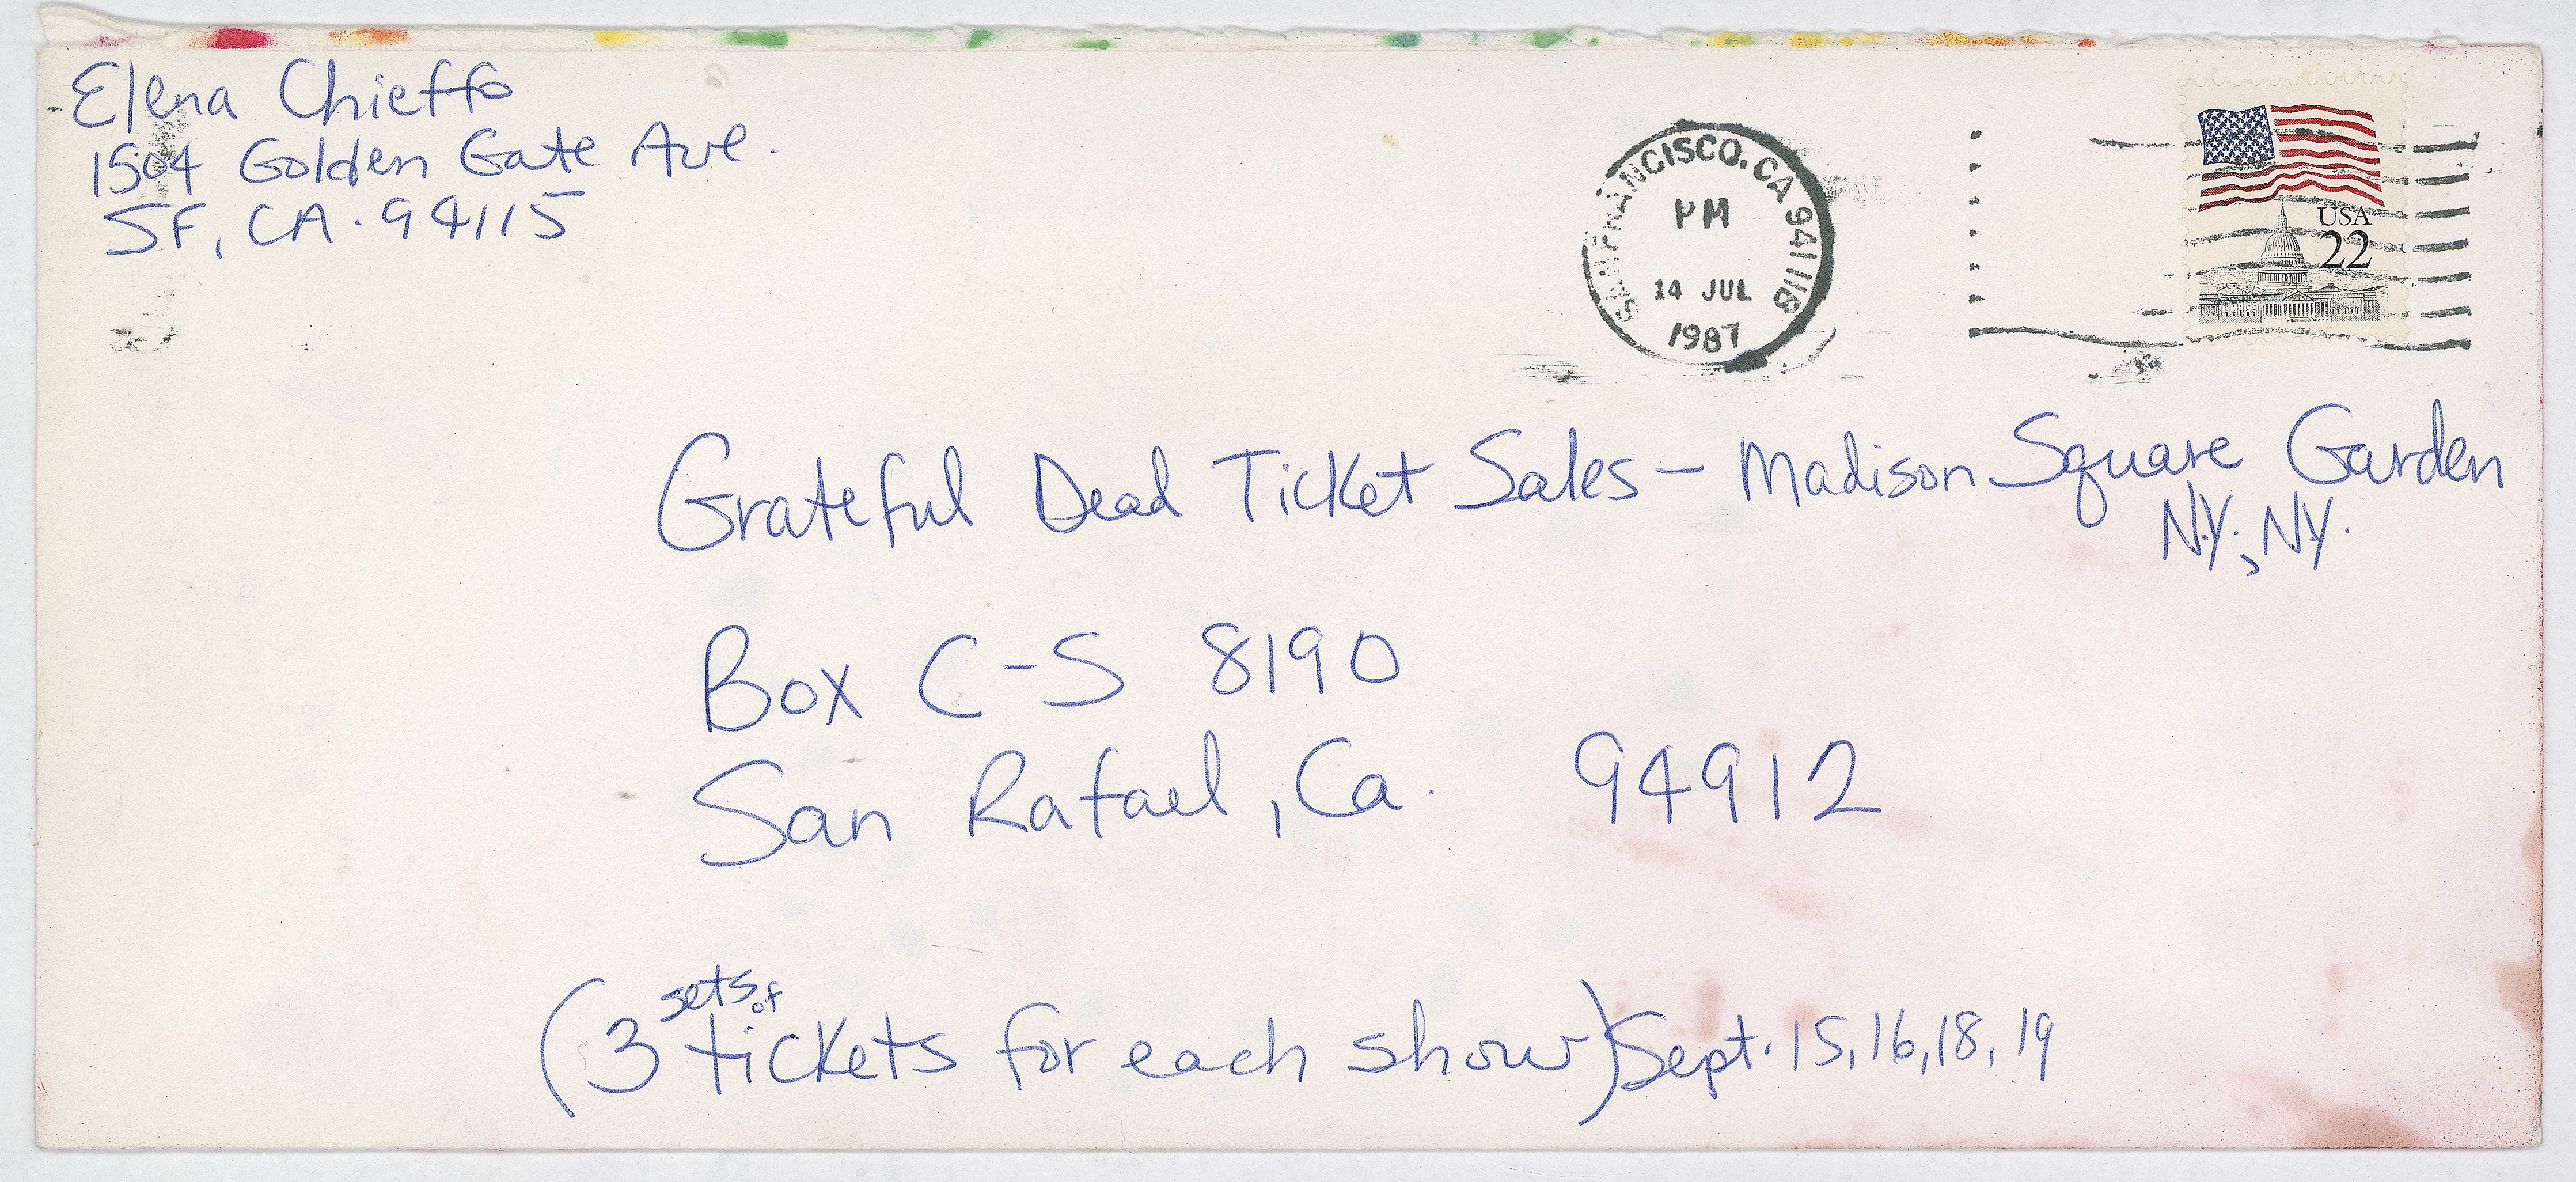 Elena Chieffo
1504 Golden Gate Ave.
SF, CA. 94115
SAN FRANCISCO, CA 941 118
PM
14 JUL
1987
USA
22
Grateful Dead Ticket Sales - Madison Square Garden
N.Y., N.Y.
Box C-S 8190
San Rafael, Ca. 94912
sets of
(3 tickets for each show) Sept. 15, 16, 18, 19